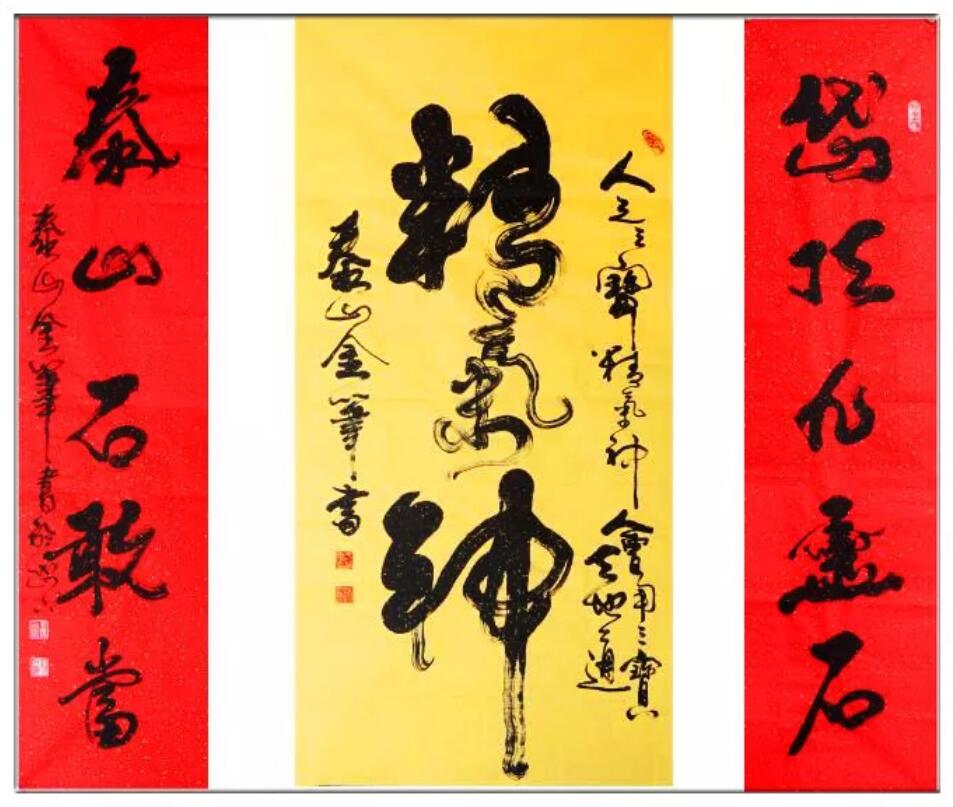 岱顶化靈石
人之三寶精氣神
會用三寶
天地
精氣神
泰山金筆書
泰山石敢當
泰山金筆書於